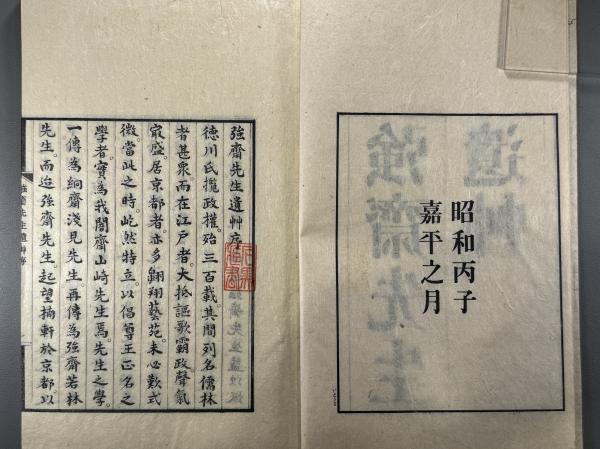 昭和丙子
嘉平之月
強齋先生遺艸序
德川氏攬政權殆三百載其間列名儒林
者甚衆而在江戶者大抵謳歌霸政聲氣
冣盛居京都者亦多翺翔藝苑未必歎式
微當此之時屹然特立以倡尊王正名之
學者實為我闇齋山崎先生焉先生之學
一傳為絅齋淺見先生再傳為強齋若林
先生而迨強齋先生起望楠軒於京都以
強齋先生遺艸序